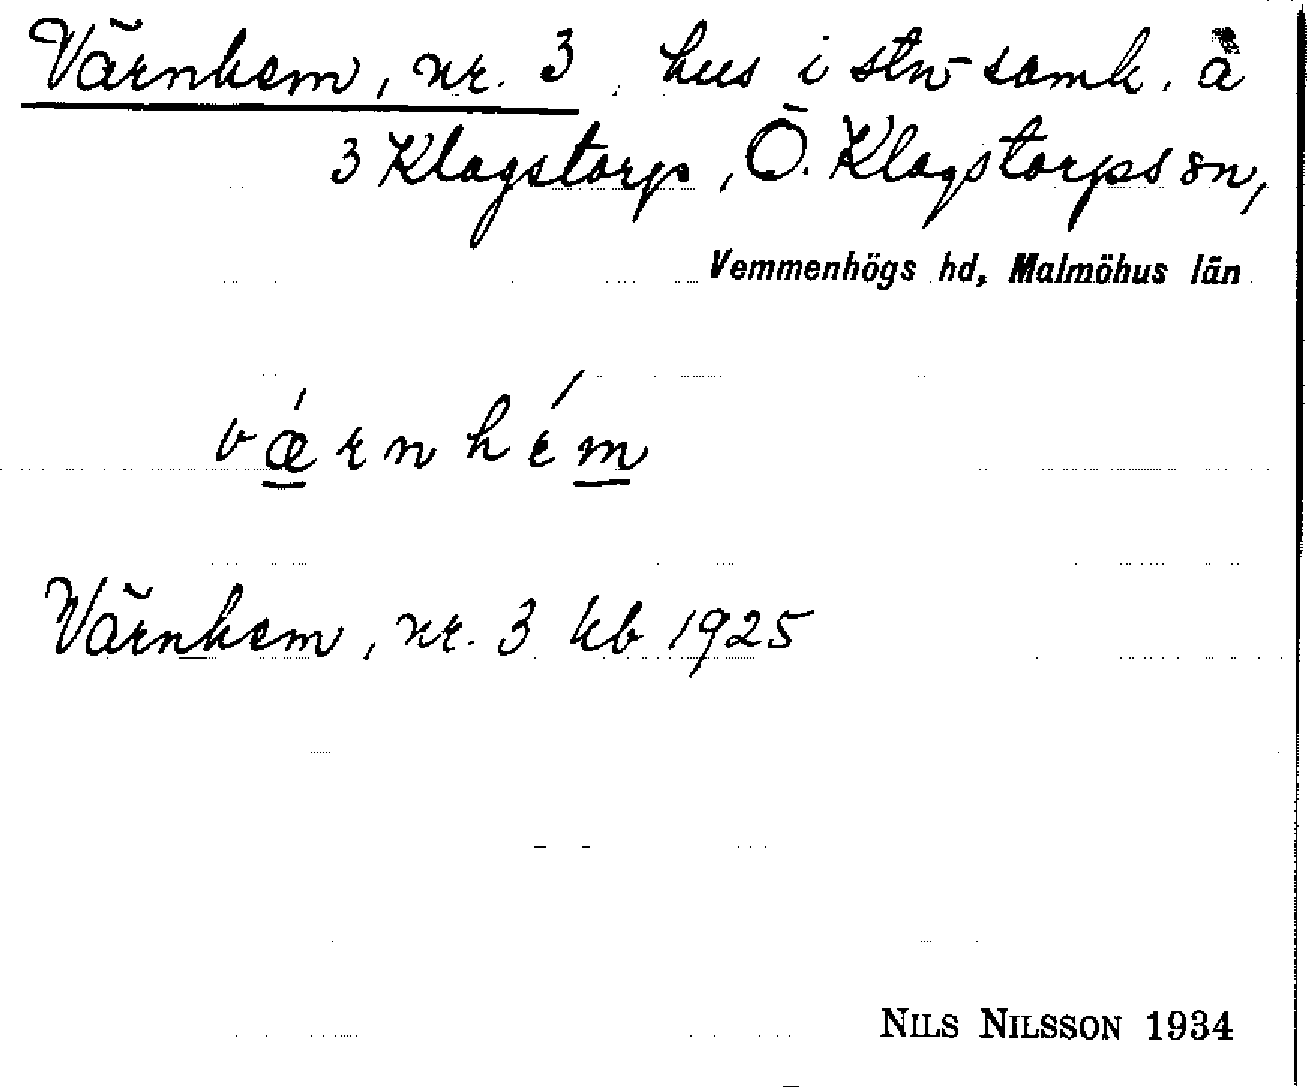 Värnhem, nr. 3, hus i stn-samh. å
3 Klagstorp, Ö. Klagstorps sn,
Vemmenhögs hd, Malmöhus län
vǽrnhém
Värnhem, nr. 3 kb 1925
NILS NILSSON 1934